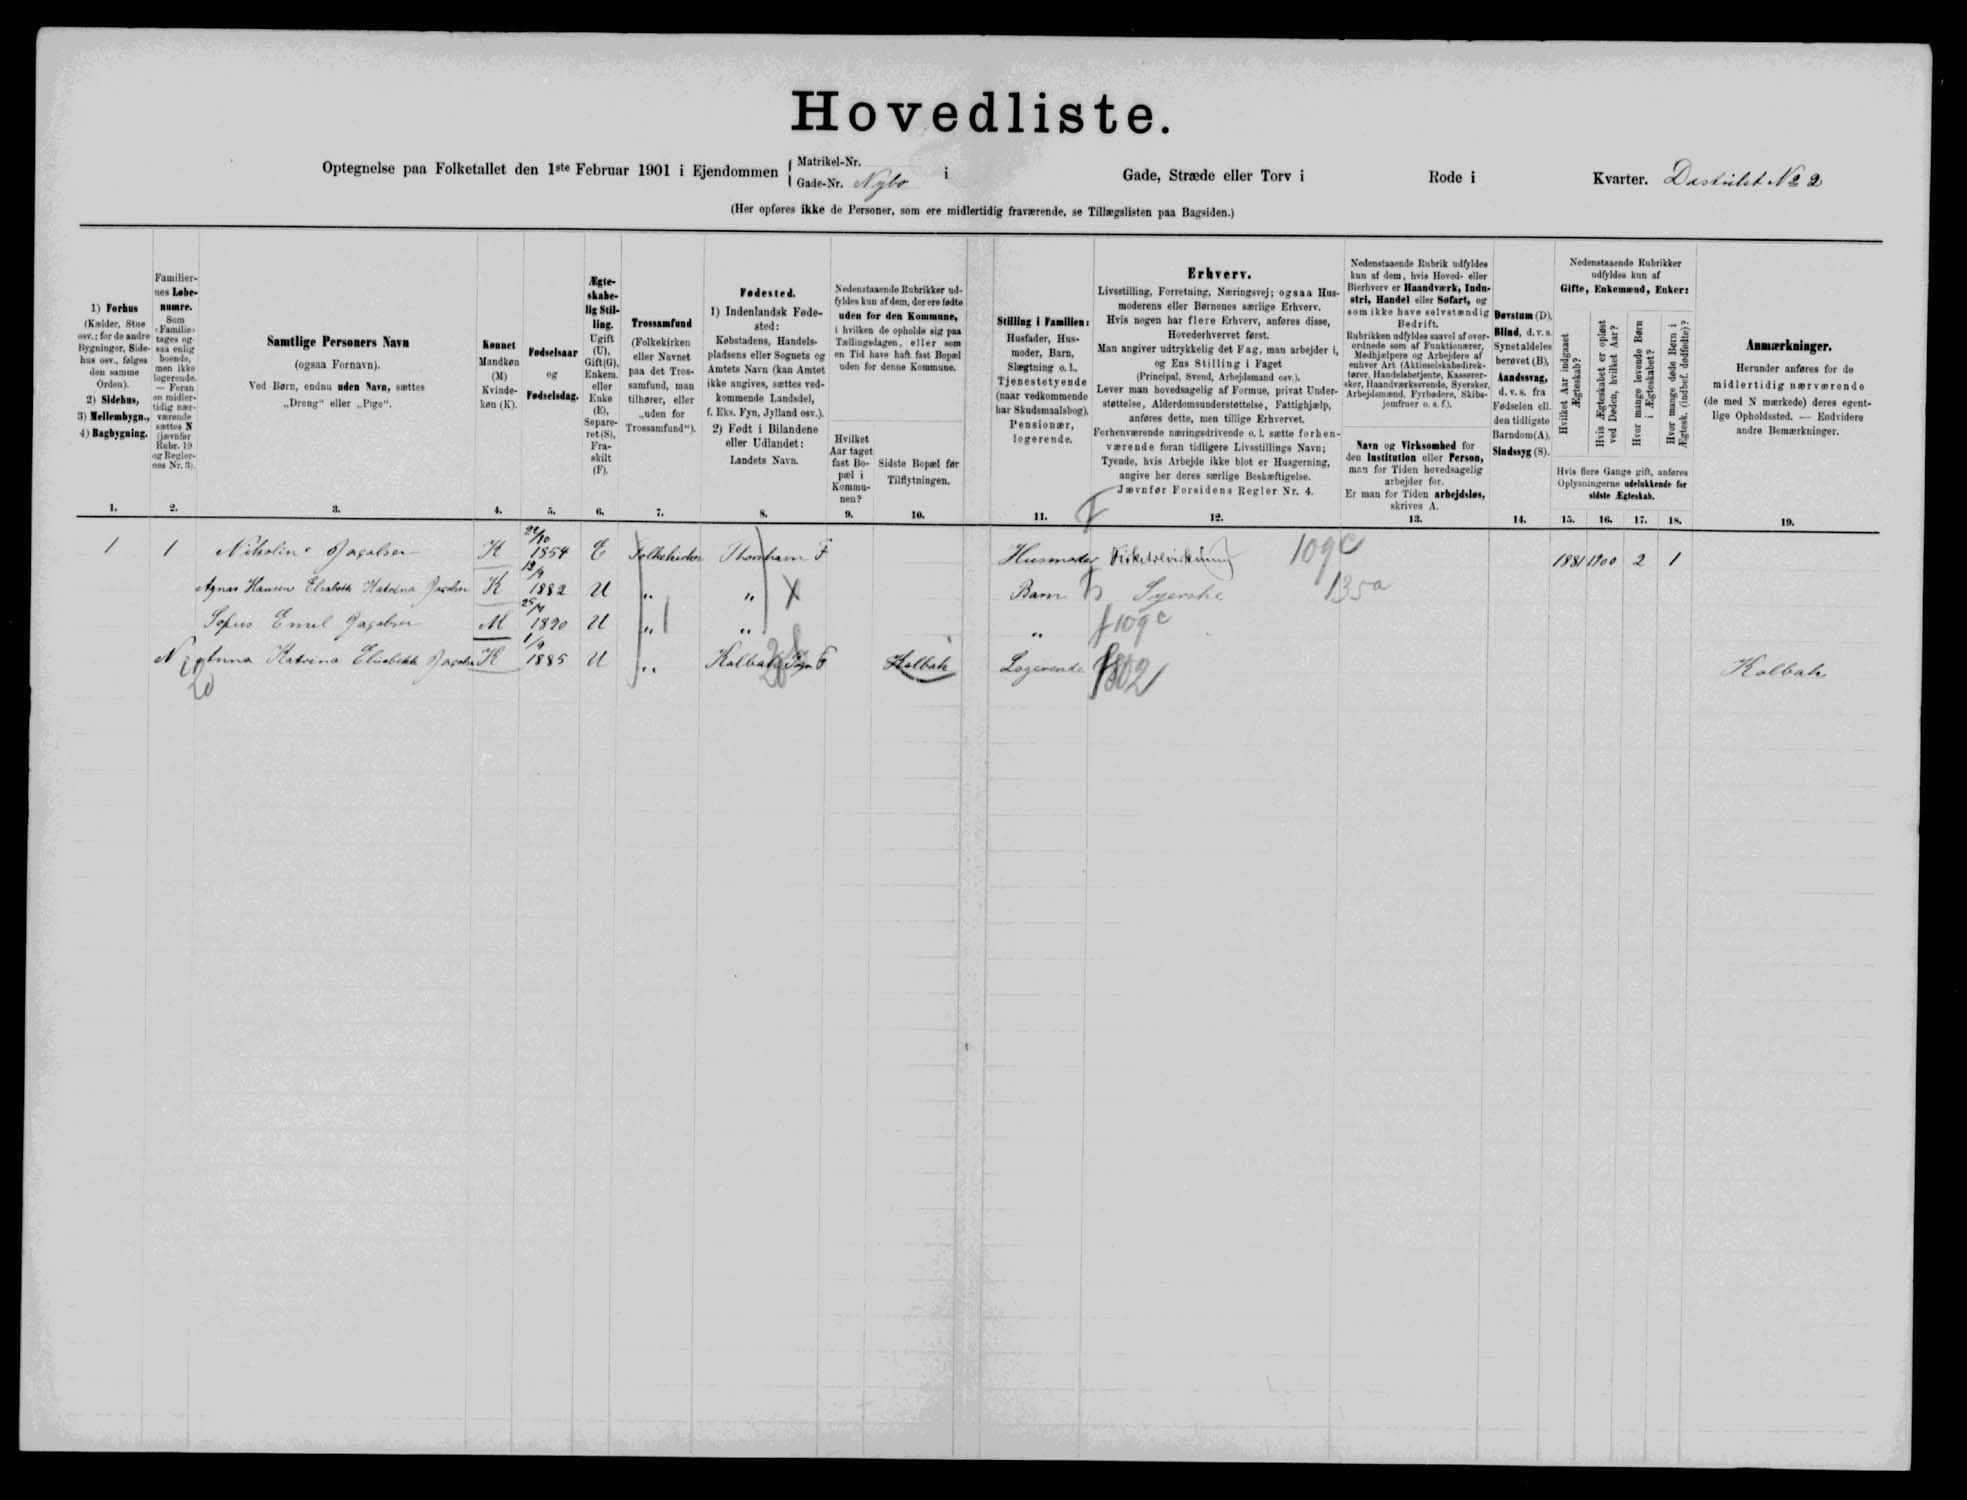 Hovedliste.
Optegnelse paa Folketallet den 1ste Februar 1901 i Ejendommen { Matrikel-Nr. Gade-Nr. Nybo i Gade, Stræde eller Torv i Rode i Kvarter. Distrikt No 2
(Her opføres ikke de Personer, som ere midlertidig fraværende, se Tillægslisten paa Bagsiden.)
1) Forhus
(Kælder, Stue
osv.; for de andre
Bygninger, Side-
hus osv., følges
den samme
Orden).
2) Sidehus,
3) Mellembygn.,
4) Bagbygning.
1.
Familier-
nes Løbe-
numre.
Som
„Familie“
tages og-
saa enlig
boende,
men ikke
logerende.
— Foran
en midler-
tidig nær-
værende
sættes N
(jævnfør
Rubr. 19
og Regler-
nes Nr. 3).
2.
Samtlige Personers Navn
(ogsaa Fornavn).
Ved Børn, endnu uden Navn, sættes
„Dreng“ eller „Pige“.
3.
Kønnet
Mandkøn
(M)
Kvinde-
køn (K).
4.
Fødselsaar
og
Fødselsdag.
5.
Ægte-
skabe-
lig Stil-
ling.
Ugift
(U),
Gift(G),
Enkem.
eller
Enke
(E),
Separe-
ret(S),
Fra-
skilt
(F).
6.
Trossamfund
(Folkekirken
eller Navnet
paa det Tros-
samfund, man
tilhører, eller
„uden for
Trossamfund“).
7.
Fødested.
1) Indenlandsk Føde-
sted:
Købstadens, Handels-
pladsens eller Sognets og
Amtets Navn (kan Amtet
ikke angives, sættes ved-
kommende Landsdel,
f. Eks. Fyn, Jylland osv.).
2) Født i Bilandene
eller Udlandet:
Landets Navn.
8.
Nedenstaaende Rubrikker ud-
fyldes kun af dem, der ere fødte
uden for den Kommune,
i hvilken de opholde sig paa
Tællingsdagen, eller som
en Tid have haft fast Bopæl
uden for denne Kommune.
Hvilket
Aar taget
fast Bo-
pæl i
Kommu-
nen?
9.
Sidste Bopæl før
Tilflytningen.
10.
Stilling i Familien:
Husfader, Hus-
moder, Barn,
Slægtning o.l.,
Tjenestetyende
(naar vedkommende
har Skudsmaalsbog),
Pensionær,
logerende.
11.
Erhverv.
Livsstilling, Forretning, Næringsvej; ogsaa Hus-
moderens eller Børnenes særlige Erhverv.
Hvis nogen har flere Erhverv, anføres disse,
Hovederhvervet først.
Man angiver udtrykkelig det Fag, man arbejder i,
og Ens Stilling i Faget
(Principal, Svend, Arbejdsmand osv.).
Lever man hovedsagelig af Formue, privat Under-
støttelse, Alderdomsunderstøttelse, Fattighjælp,
anføres dette, men tillige Erhvervet.
Forhenværende næringsdrivende o. l. sætte forhen-
værende foran tidligere Livsstillings Navn;
Tyende, hvis Arbejde ikke blot er Husgerning,
angive her deres særlige Beskæftigelse.
Jævnfør Forsidens Regler Nr. 4.
12.
Nedenstaaende Rubrik udfyldes
kun af dem, hvis Hoved- eller
Bierhverv er Haandværk, Indu-
stri, Handel eller Søfart, og
som ikke have selvstændig
Bedrift.
Rubrikken udfyldes saavel af over-
ordnede som af Funktionærer,
Medhjælpere og Arbejdere af
enhver Art (Aktieselskabsdirek-
tører, Handelsbetjente, Kasserer-
sker, Haandværkssvende, Syersker,
Arbejdsmænd, Fyrbødere, Skibs-
jomfruer o. s. f.).
Navn og Virksomhed for
den Institution eller Person,
man for Tiden hovedsagelig
arbejder for.
Er man for Tiden arbejdsløs,
skrives A.
13.
Døvstum (D),
Blind, d. v. s.
Synet aldeles
berøvet (B),
Aandssvag,
d. v. s. fra
Fødselen ell.
den tidligste
Barndom(A),
Sindssyg (S).
14.
Nedenstaaende Rubrikker
udfyldes kun af
Gifte, Enkemænd, Enker:
Hvilket Aar indgaaet
Ægteskab?
Hvis Ægteskabet er opløst
ved Døden, hvilket Aar?
Hvor mange levende Børn
i Ægteskabet?
Hvor mange døde Børn i
Ægtesk. (indbef. dødfødte)?
Hvis flere Gange gift, anføres
Oplysningerne udelukkende for
sidste Ægteskab.
15. 16. 17. 18.
Anmærkninger.
Herunder anføres for de
midlertidig nærværende
(de med N mærkede) deres egent-
lige Opholdssted. — Endvidere
andre Bemærkninger.
19.
1 1 Nikoline Jacobsen K 1854 E Folkekirken Thorshavn F Husmoder 109c 1881 1900 2 1
Agnas Hansen Elisabeth Katrina Jacobsen K 1882 U „ „ Barn Syerske 135a
Sofus Emil Jacobsen M 1890 U „ „ „ 109c
N Anna Katrina Elisabeth Jacobsen K 1/9 1885 U „ Kalbak F Kalbak Logerende Kalbak
20